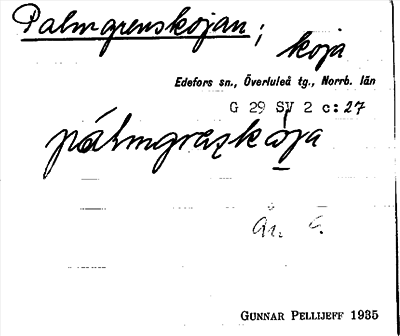 Palmgrenskojan; koja
Edefors sn., Överluleå tg., Norrb. län
G 29 SV 2 c:27
GUNNAR PELLIJEFF 1935